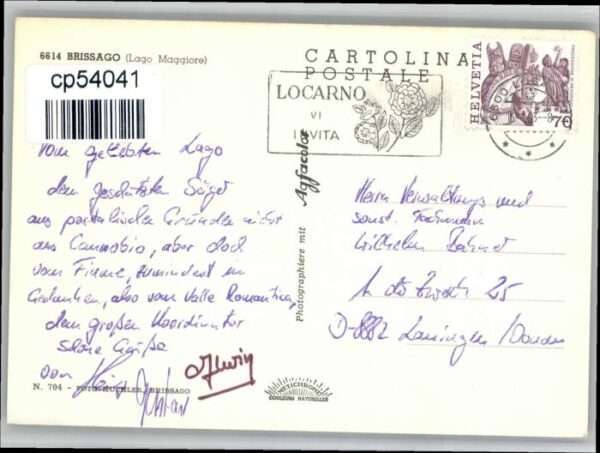 6614 BRISSAGO (Lago Maggiore)
cp54041
CARTOLINA
POSTALE
LOCARNO
VI
INVITA
HELVETIA
70
Vom geliebten Lago
dem geschätzten Sänger
aus Gründen nicht
aus Cannobio, aber doch
vom Fiume, zumindest in
Gedanken, also vom Valle Romantica,
dem großen Koordinator
schöne Grüße
von
Photographiere mit Agfacolor
Herrn Verwaltungs und
sonst.
Wilhelm
25
D-8882 Lauingen/Donau
N. 704 - FOTO KÜCHLER, BRISSAGO